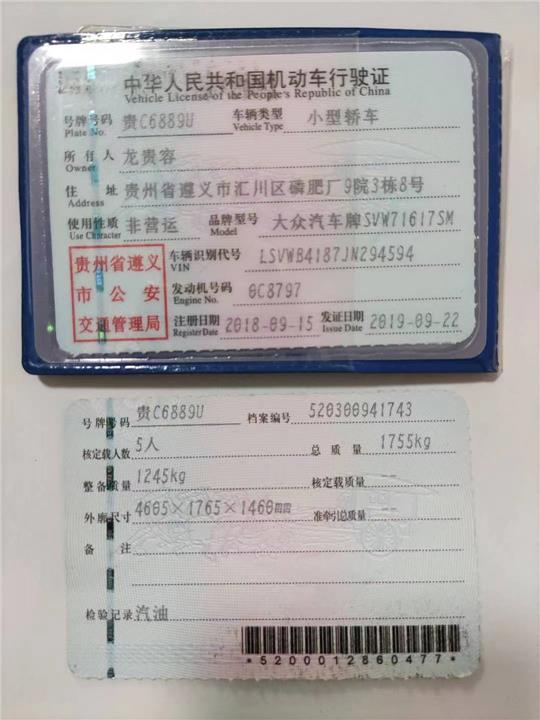 中华人民共和国机动车行驶证
Vehicle License of the People's Republic of China
号牌号码 贵C6889U 车辆类型 小型轿车
Plate No. Vehicle Type
所有人 龙贵容
Owner
住 址 贵州省遵义市汇川区磷肥厂9院3栋8号
Address
使用性质 非营运 品牌型号 大众汽车牌SVW71617SM
Use Character Model
贵州省遵义
市公安
交通管理局
车辆识别代号 LSVWB4187JN294594
VIN
发动机号码 0C8797
Engine No.
注册日期 2018-09-15 发证日期 2019-09-22
Register Date Issue Date
号牌号码 贵C6889U 档案编号 520300941743
核定载人数 5人 总质量 1755kg
整备质量 1245kg 核定载质量 --
外廓尺寸 4605×1765×1460mm 准牵引总质量 --
备 注
检验记录 汽油
*5200012860477*